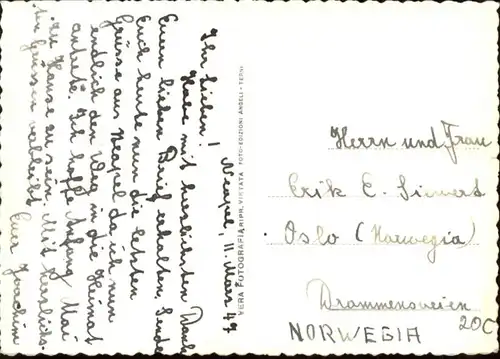 Neapel, 11. März 49
Ihr Lieben!
Habe mit herzlichsten Dank
Euren lieben Brief erhalten. Sende
Euch heute nun die letzten
Grüsse aus Neapel da ich nun
endlich den Weg in die Heimat
antrete. Ich hoffe Anfang Mai
zu Hause zu sein. Mit herzlich-
sten Grüssen verbleibt
Euer Joachim
VERA FOTOGRAFIA RIPR. VIETATA FOTO-EDIZIONI ANGELI - TERNI
Herrn und Frau
Erik E. Siewers
Oslo (Norwegia)
Drammensveien 20C
NORWEGIA